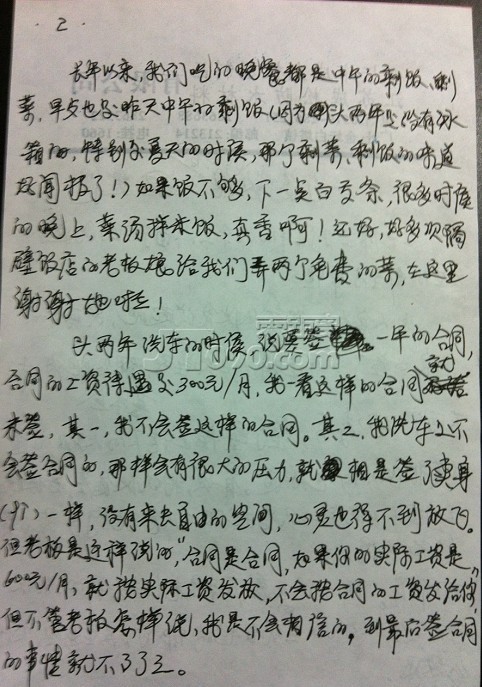 2
去年以来，我们吃的晚餐都是中午的剩饭、剩
菜，早点也是昨天中午的剩饭（因为头两年是没有冰
箱的，特别是夏天的时候，那个剩菜、剩饭的味道
难闻极了！）如果饭不够，下一点白面条，很多时候
的晚上，菜汤拌米饭，真香啊！还好，好多次隔
壁饭店的老板娘给我们弄两个免费的菜，在这里
谢谢她啦！
头两年洗车的时候，说要签一年的合同，
合同的工资待遇是300元/月，我一看这样的合同就
未签，其一，我不会签这样的合同。其二，我洗车是不
会签合同的，那样会有很大的压力，就相是签了卖身
一样，没有来去自由的空间，心灵也得不到放飞。
但老板是这样说的，“合同是合同，如果你的实际工资是
600元/月，就按实际工资发放，不会按合同的工资发给你”，
但不管老板怎样说，我是不会相信的，到最后签合同
的事情就不了了之。